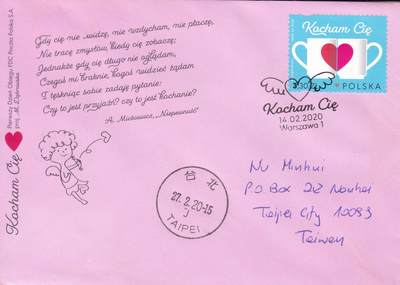 Gdy cię nie widzę, nie wzdycham, nie płaczę,
Nie tracę zmysłów, kiedy cię zobaczę;
Jednakże gdy cię długo nie oglądam,
Czegoś mi braknie, kogoś widzieć żądam
I tęskniąc sobie zadaję pytanie:
Czy to jest przyjaźń? czy to jest kochanie?
A. Mickiewicz, "Niepewność"
Kocham Cię
Pierwszy Dzień Obiegu FDC Poczta Polska S.A.
proj. M. Dąbrowska
Kocham Cię
3,30 ZŁ POLSKA
Kocham Cię
14.02.2020
Warszawa 1
台北
27. 2. 20-15
J
TAIPEI
Nu Minhui
P.O Box 212 Nanhai
Taipei City 10083
Taiwan